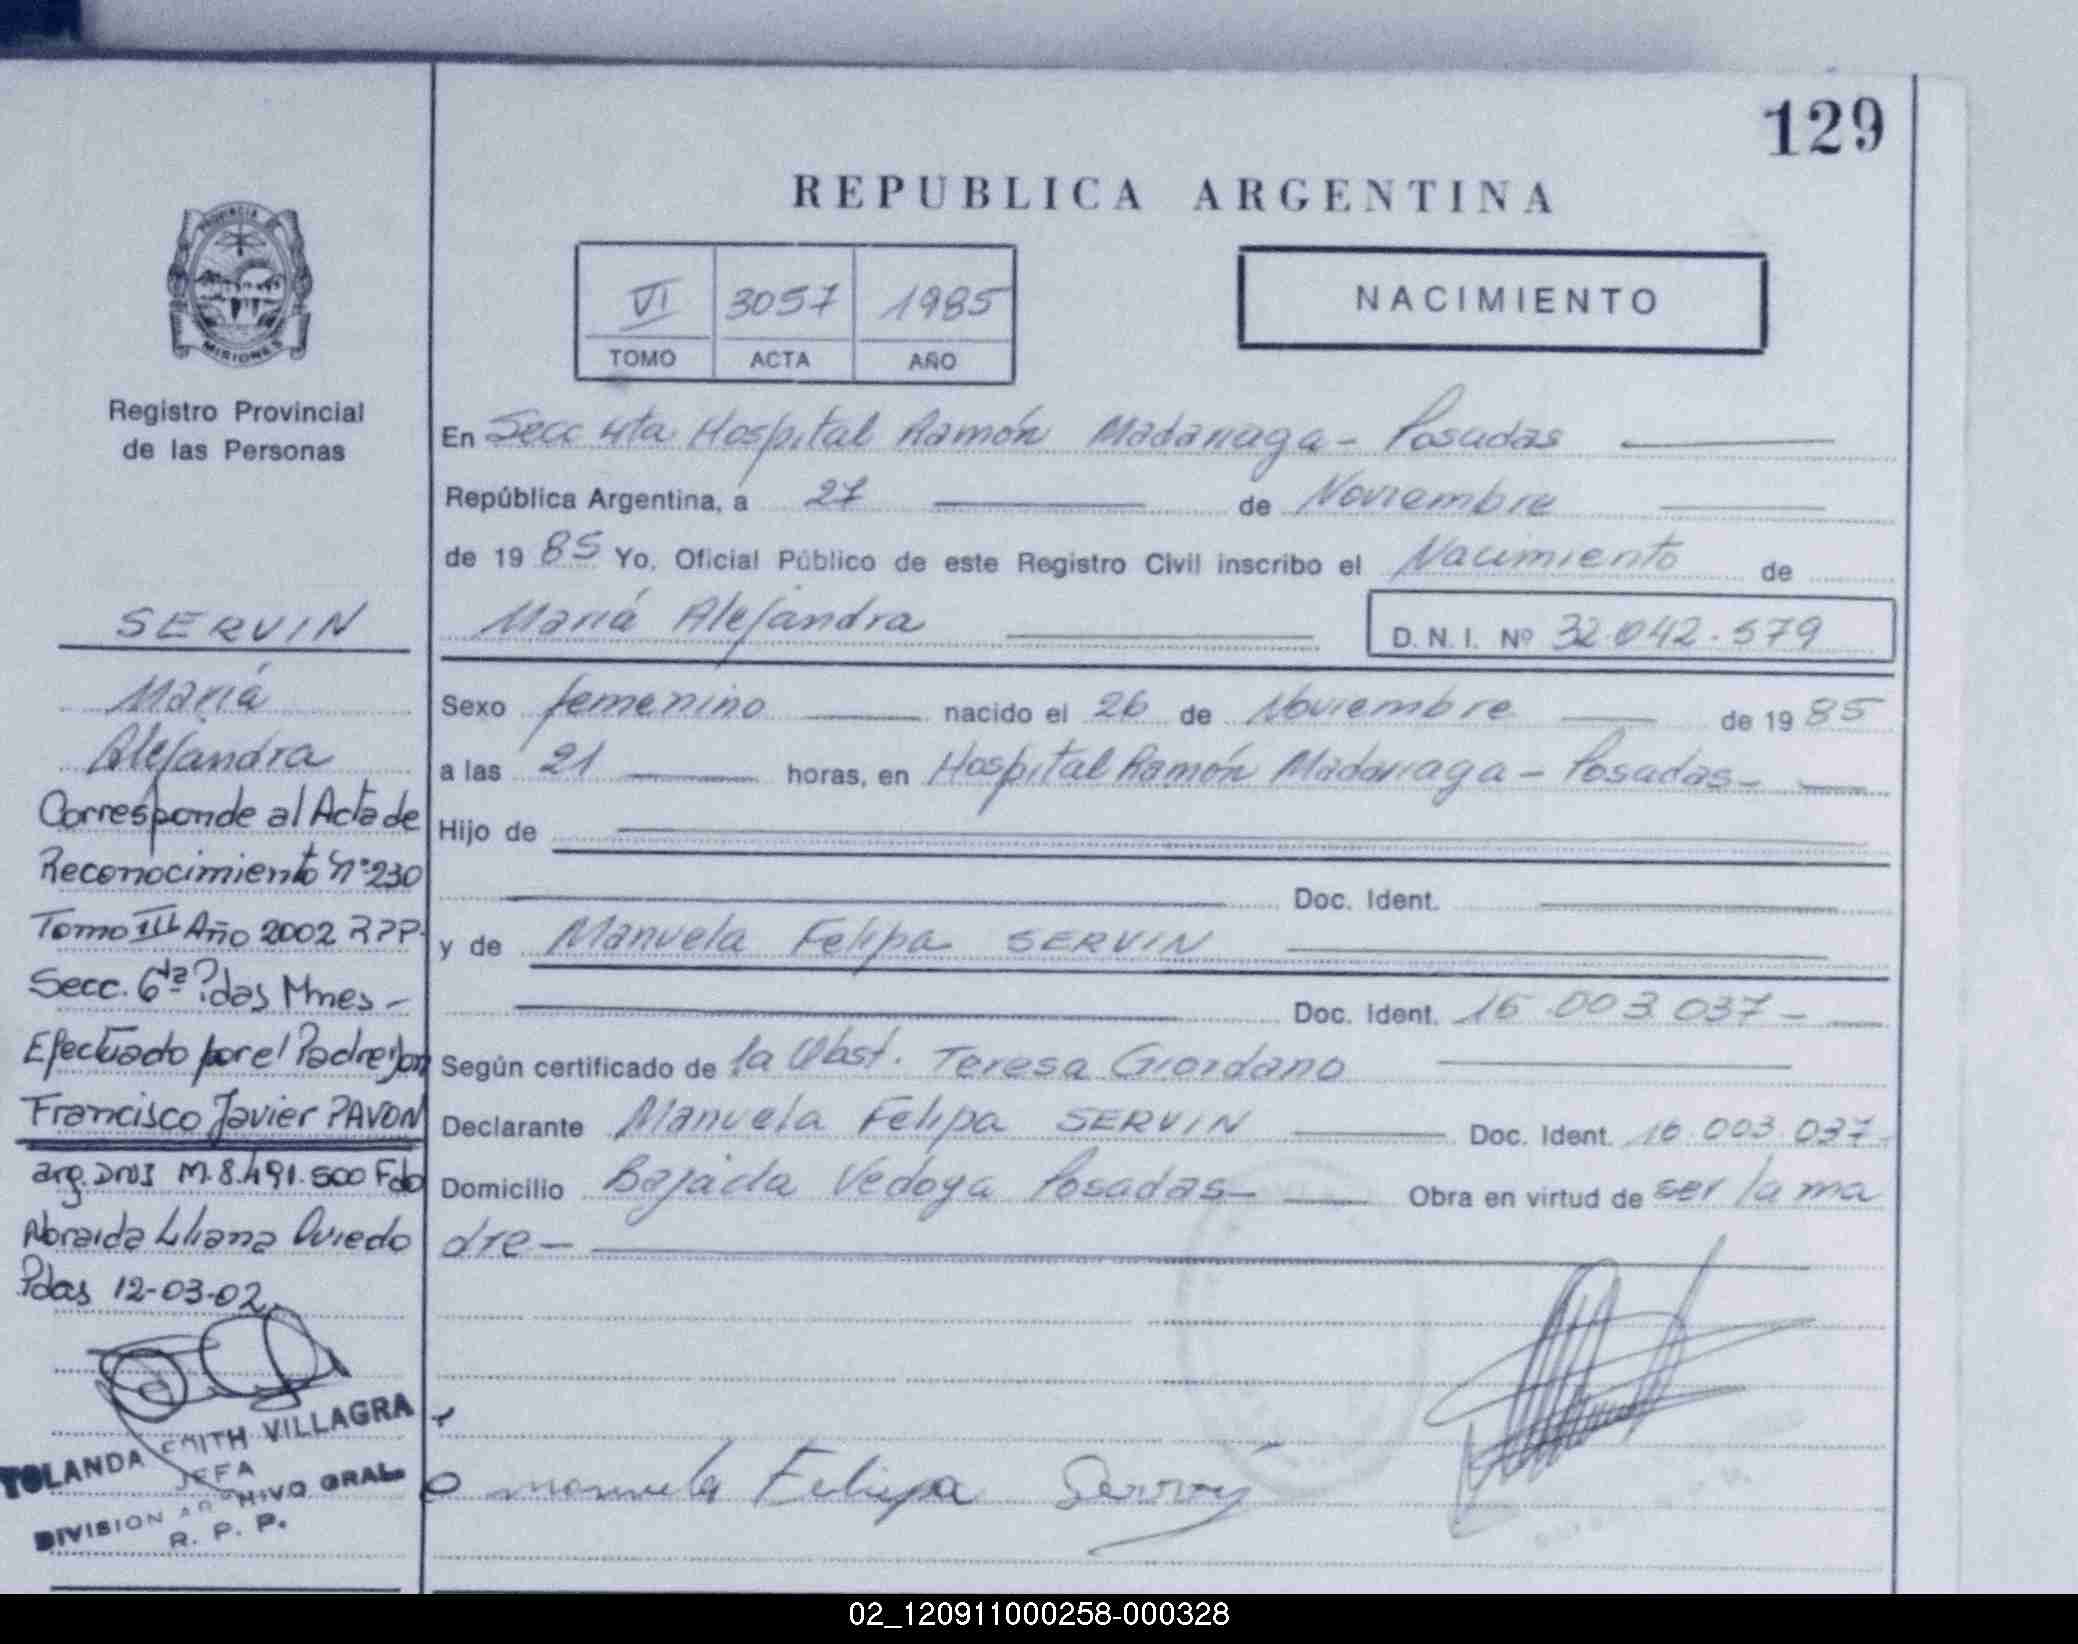 129
REPUBLICA ARGENTINA
PROVINCIA DE
MISIONES
Registro Provincial
de las Personas
VI 3057 1985
TOMO ACTA AÑO
NACIMIENTO
En Secc 4ta Hospital Ramón Madariaga - Posadas
República Argentina, a 27 de Noviembre
de 1985 Yo, Oficial Público de este Registro Civil inscribo el Nacimiento de
María Alejandra D. N. I. Nº 32.042.579
Sexo femenino nacido el 26 de Noviembre de 1985
a las 21 horas, en Hospital Ramón Madariaga - Posadas-
Hijo de
Doc. Ident.
y de Manuela Felipa SERVIN
Doc. Ident. 16.003.037-
Según certificado de la Obst. Teresa Giordano
Declarante Manuela Felipa SERVIN Doc. Ident. 16.003.037-
Domicilio Bajada Vedoya Posadas- Obra en virtud de ser la ma
dre-
Manuela Felipa Servin
SERVIN
María
Alejandra
Corresponde al Acta de
Reconocimiento Nº 230
Tomo III Año 2002 RPP.
Secc. 6ta Pdas Mnes-
Efectuado por el Padre Don
Francisco Javier PAVON
arg. DNI M.8.491.500 Fdo
Liliana Oviedo
Pdas 12-03-02
YOLANDA EDITH VILLAGRA
JEFA
DIVISION ARCHIVO GRAL.
R. P. P.
02_120911000258-000328